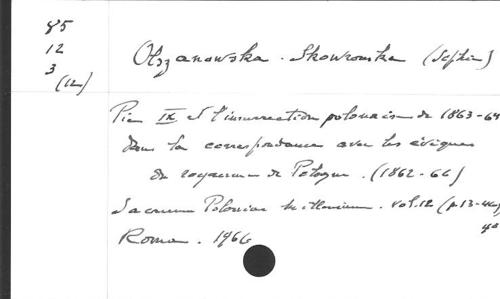 85
12
3
(12)
Olszanowska-Skowronska (Sophie)
Pie IX et l'insurrection polonaise de 1863-64
dans la correspondance avec les évêques
du royaume de Pologne. (1862-66)
Sacrum Poloniae Millennium. vol. 12
Roma. 1966